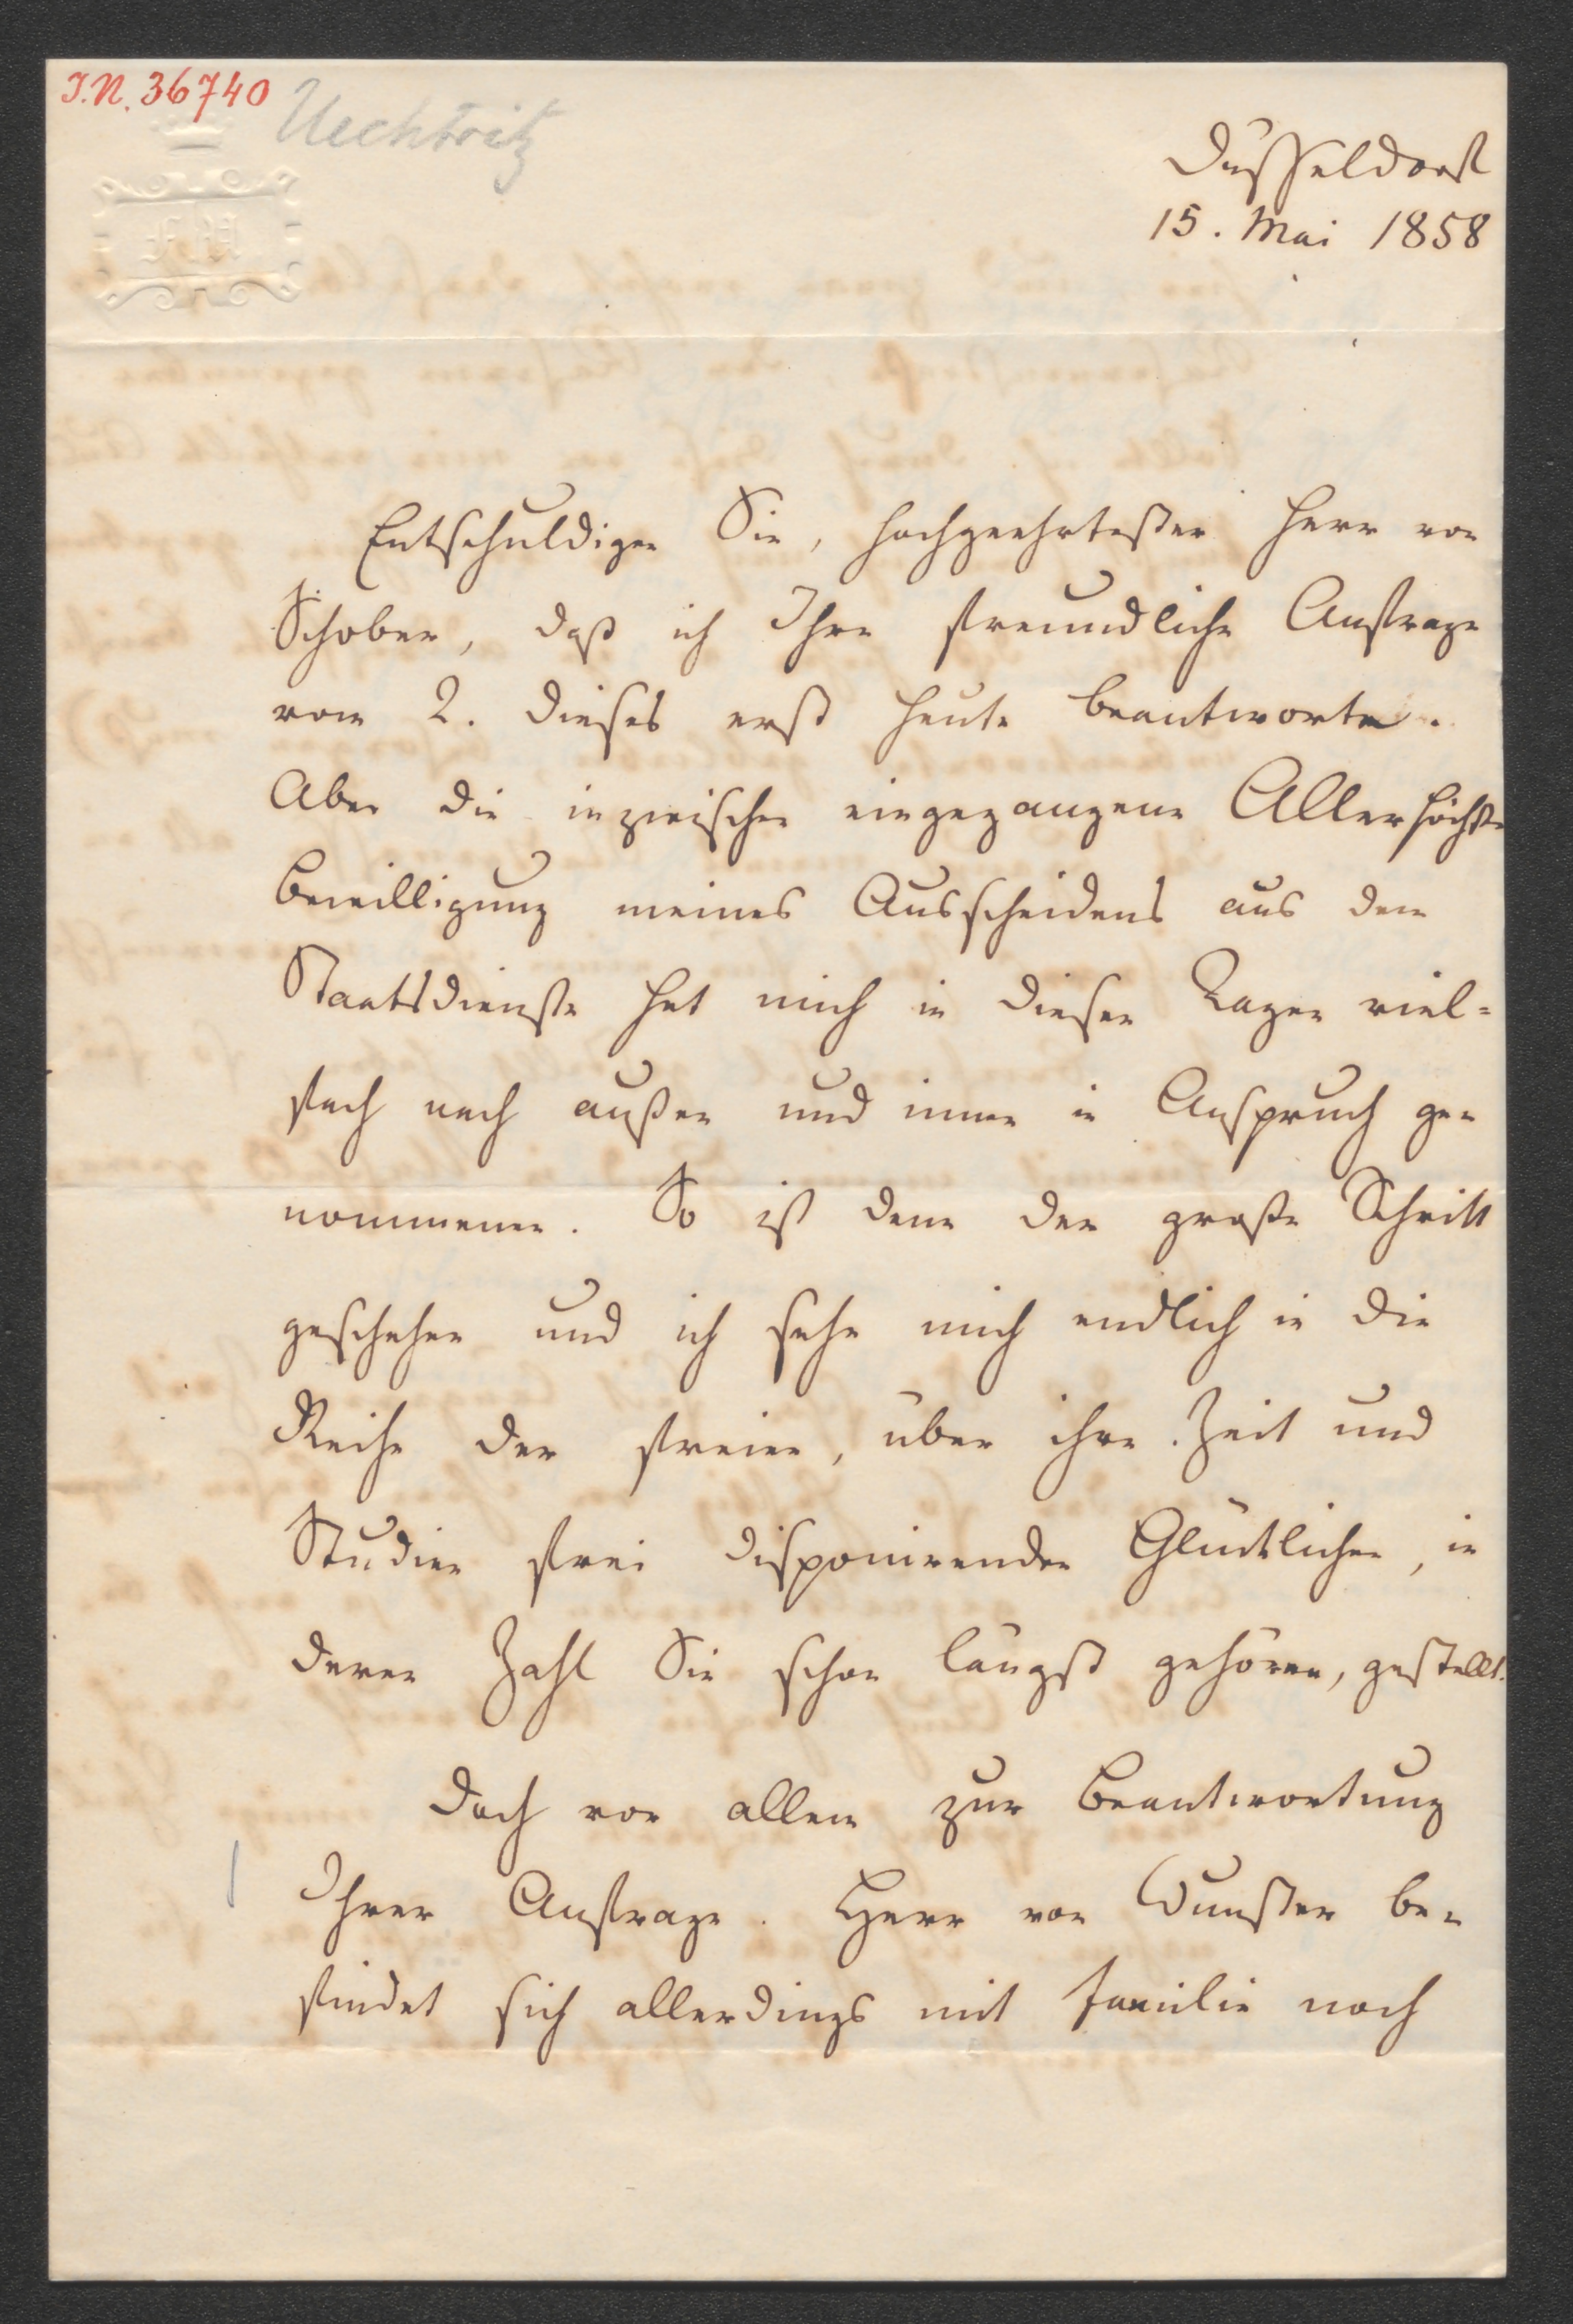 I.N. 36740
Uechtritz
Düsseldorf
15. Mai 1858
Entschuldigen Sie, hochgeehrtester Herr von
Schober, daß ich Ihre freundliche Anfrage
vom 2. dieses erst heute beantworte.
Aber die inzwischen eingegangene Allerhöchste
Bewilligung meines Ausscheidens aus dem
Staatsdienste hat mich in diesen Tagen viel=
fach nach außen und innen in Anspruch ge-
nommenen. So ist denn der große Schritt
geschehen und ich sehe mich endlich in die
Reihe der freien, über ihre Zeit und
Studien frei disponirenden Glücklichen, in
deren Zahl Sie schon längst gehören, gestellt.
Doch vor allem zur Beantwortung
Ihrer Anfrage. Herr von Wunster be-
findet sich allerdings mit Familie noch